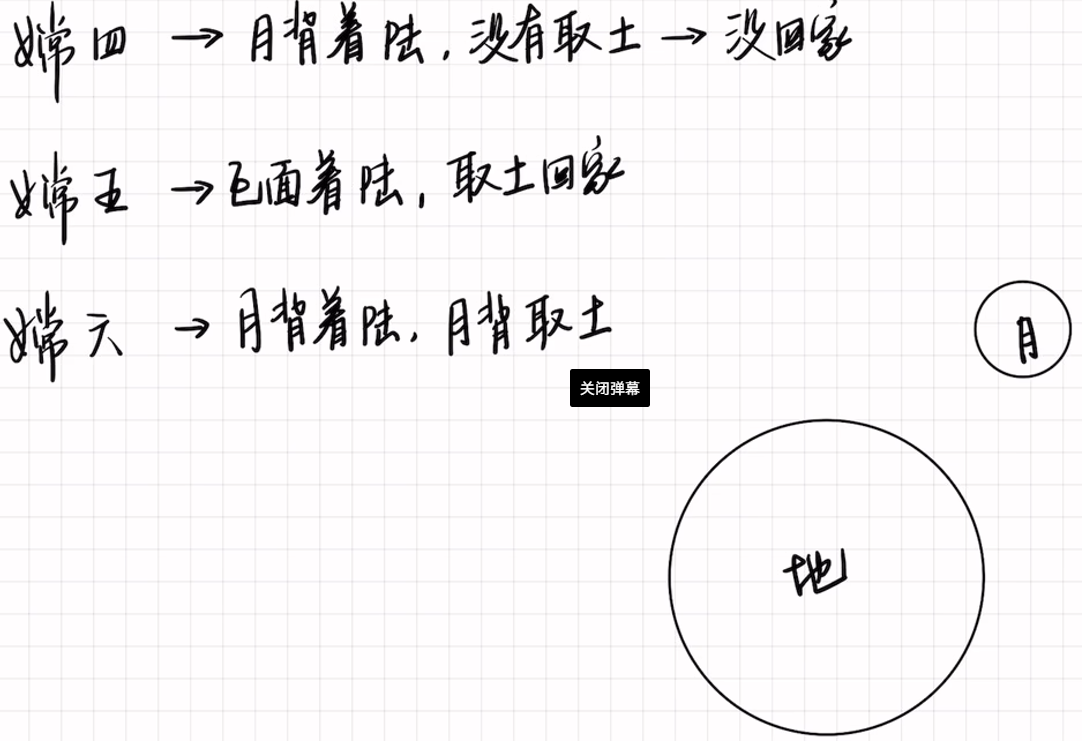 嫦四 → 月背着陆，没有取土 → 没回家
嫦五 → 正面着陆，取土回家
嫦六 → 月背着陆，月背取土
月
关闭弹幕
地